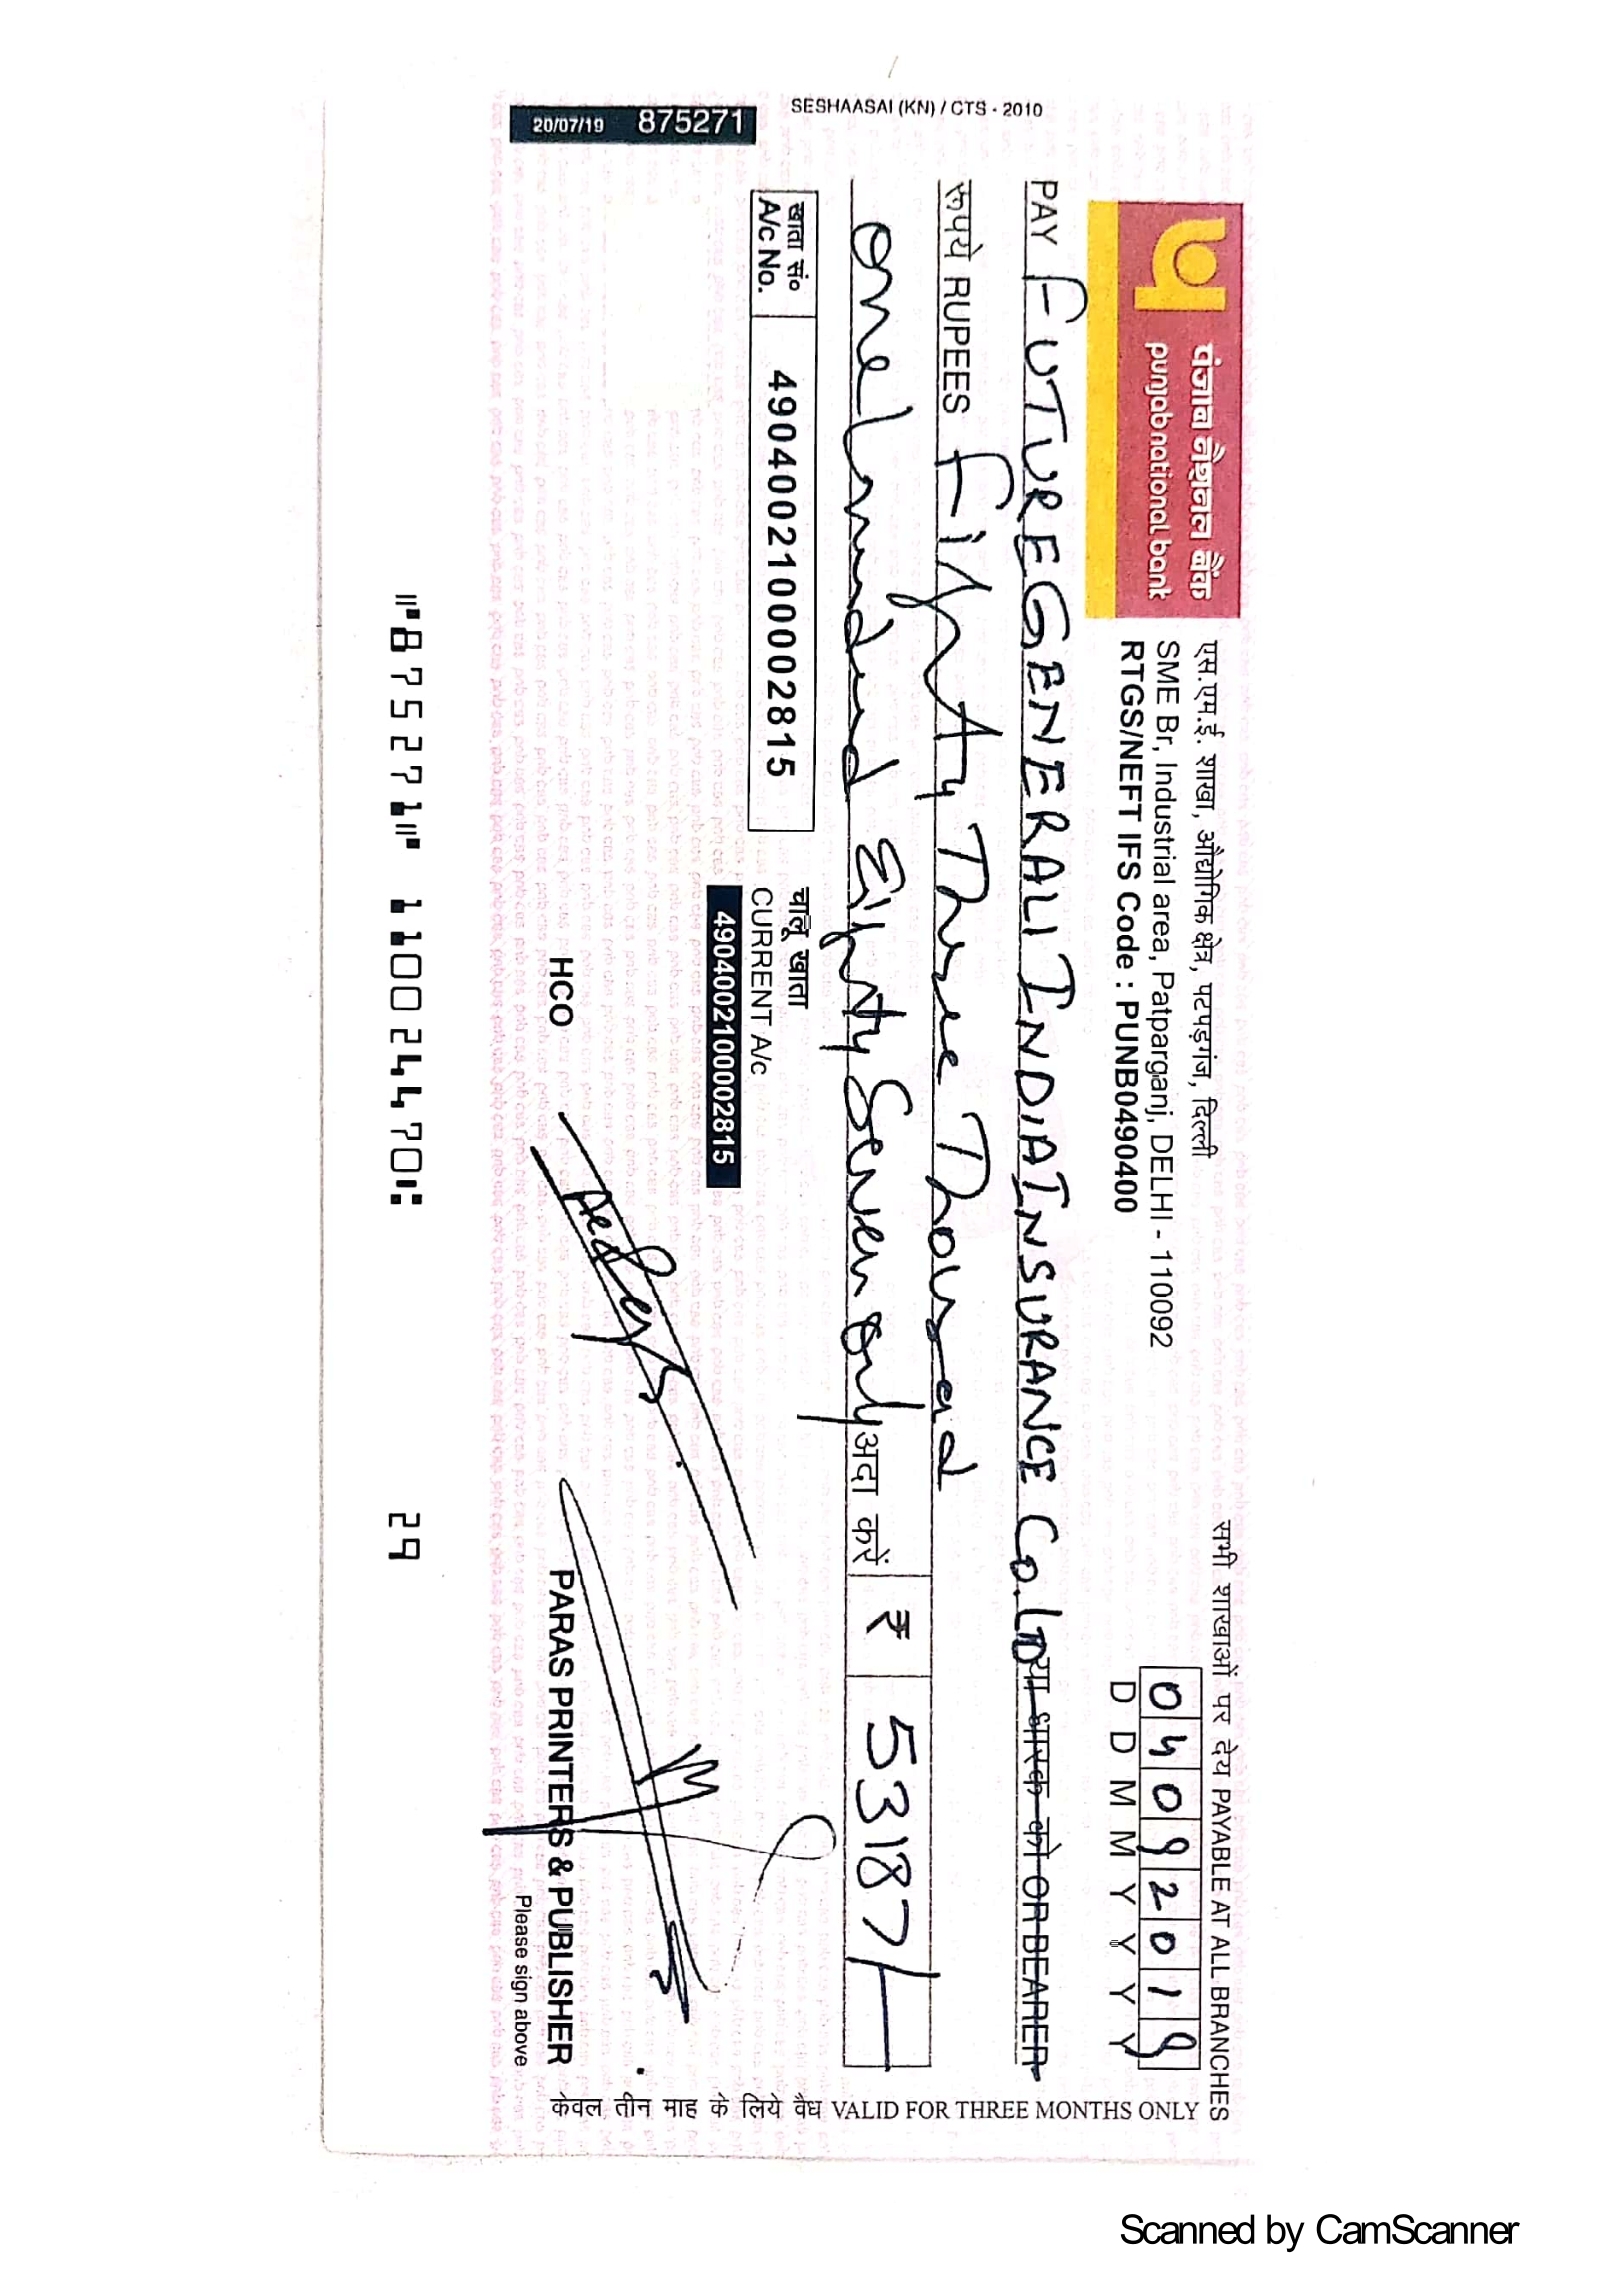 पंजाब नैशनल बैंक
punjab national bank
एस.एम.ई. शाखा, औद्योगिक क्षेत्र, पटपड़गंज, दिल्ली
SME Br, Industrial area, Patparganj, DELHI - 110092
RTGS/NEFT IFS Code : PUNB0490400
सभी शाखाओं पर देय PAYABLE AT ALL BRANCHES
04092019
D D M M Y Y Y Y
PAY FUTURE GENERALI INDIA INSURANCE Co. LTD या धारक को OR BEARER
रूपये RUPEES Fifty Three Thousand
One Hundred Eighty Seven only अदा करें ₹ 53187/-
खाता सं० A/c No. 4904002100002815
चालू खाता
CURRENT A/c
4904002100002815
HCO
PARAS PRINTERS & PUBLISHER
Please sign above
केवल तीन माह के लिये वैध VALID FOR THREE MONTHS ONLY
SESHAASAI (KN) / CTS - 2010
20/07/19 875271
⑈875271⑈ 110024470⑆ 29
Scanned by CamScanner